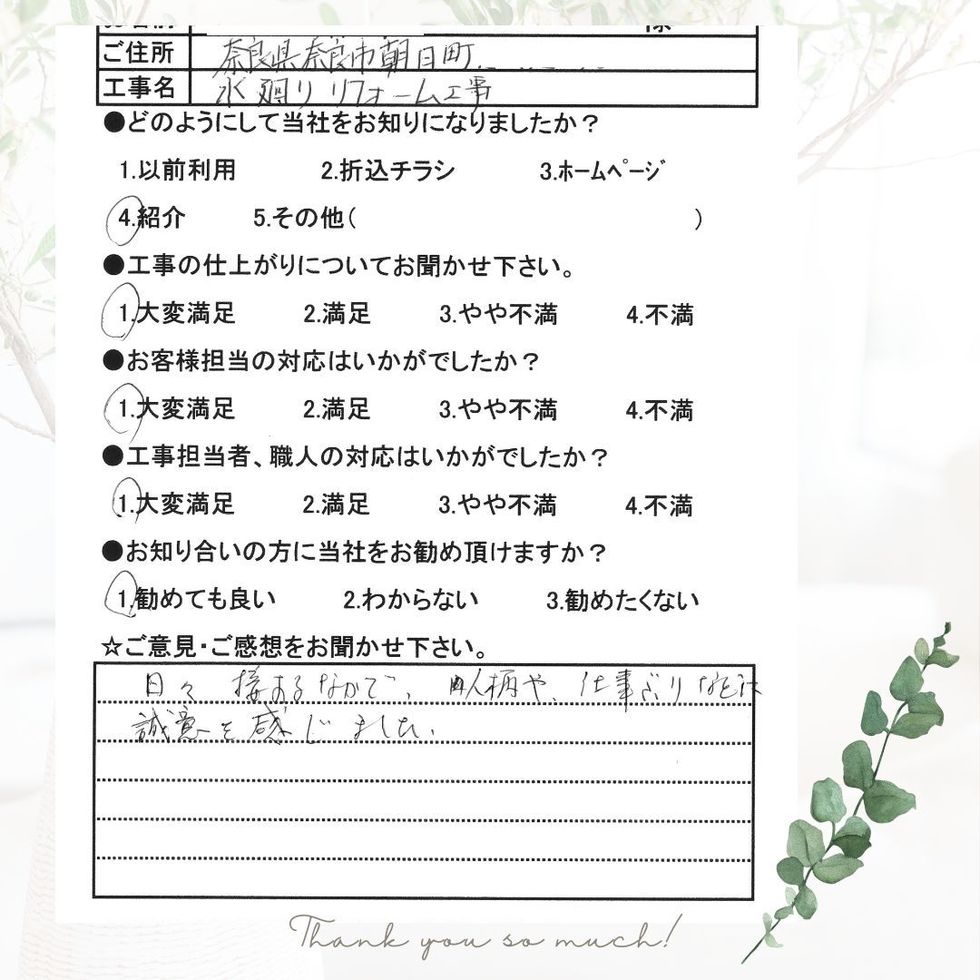 お名前 様
ご住所 奈良県奈良市朝日町
工事名 水廻りリフォーム工事
●どのようにして当社をお知りになりましたか？
1.以前利用 2.折込チラシ 3.ホームページ
4.紹介 5.その他( )
●工事の仕上がりについてお聞かせ下さい。
1.大変満足 2.満足 3.やや不満 4.不満
●お客様担当の対応はいかがでしたか？
1.大変満足 2.満足 3.やや不満 4.不満
●工事担当者、職人の対応はいかがでしたか？
1.大変満足 2.満足 3.やや不満 4.不満
●お知り合いの方に当社をお勧め頂けますか？
1.勧めても良い 2.わからない 3.勧めたくない
☆ご意見・ご感想をお聞かせ下さい。
日々 接するなかで、人柄や、仕事ぶりなどに
誠意を感じました。
Thank you so much!